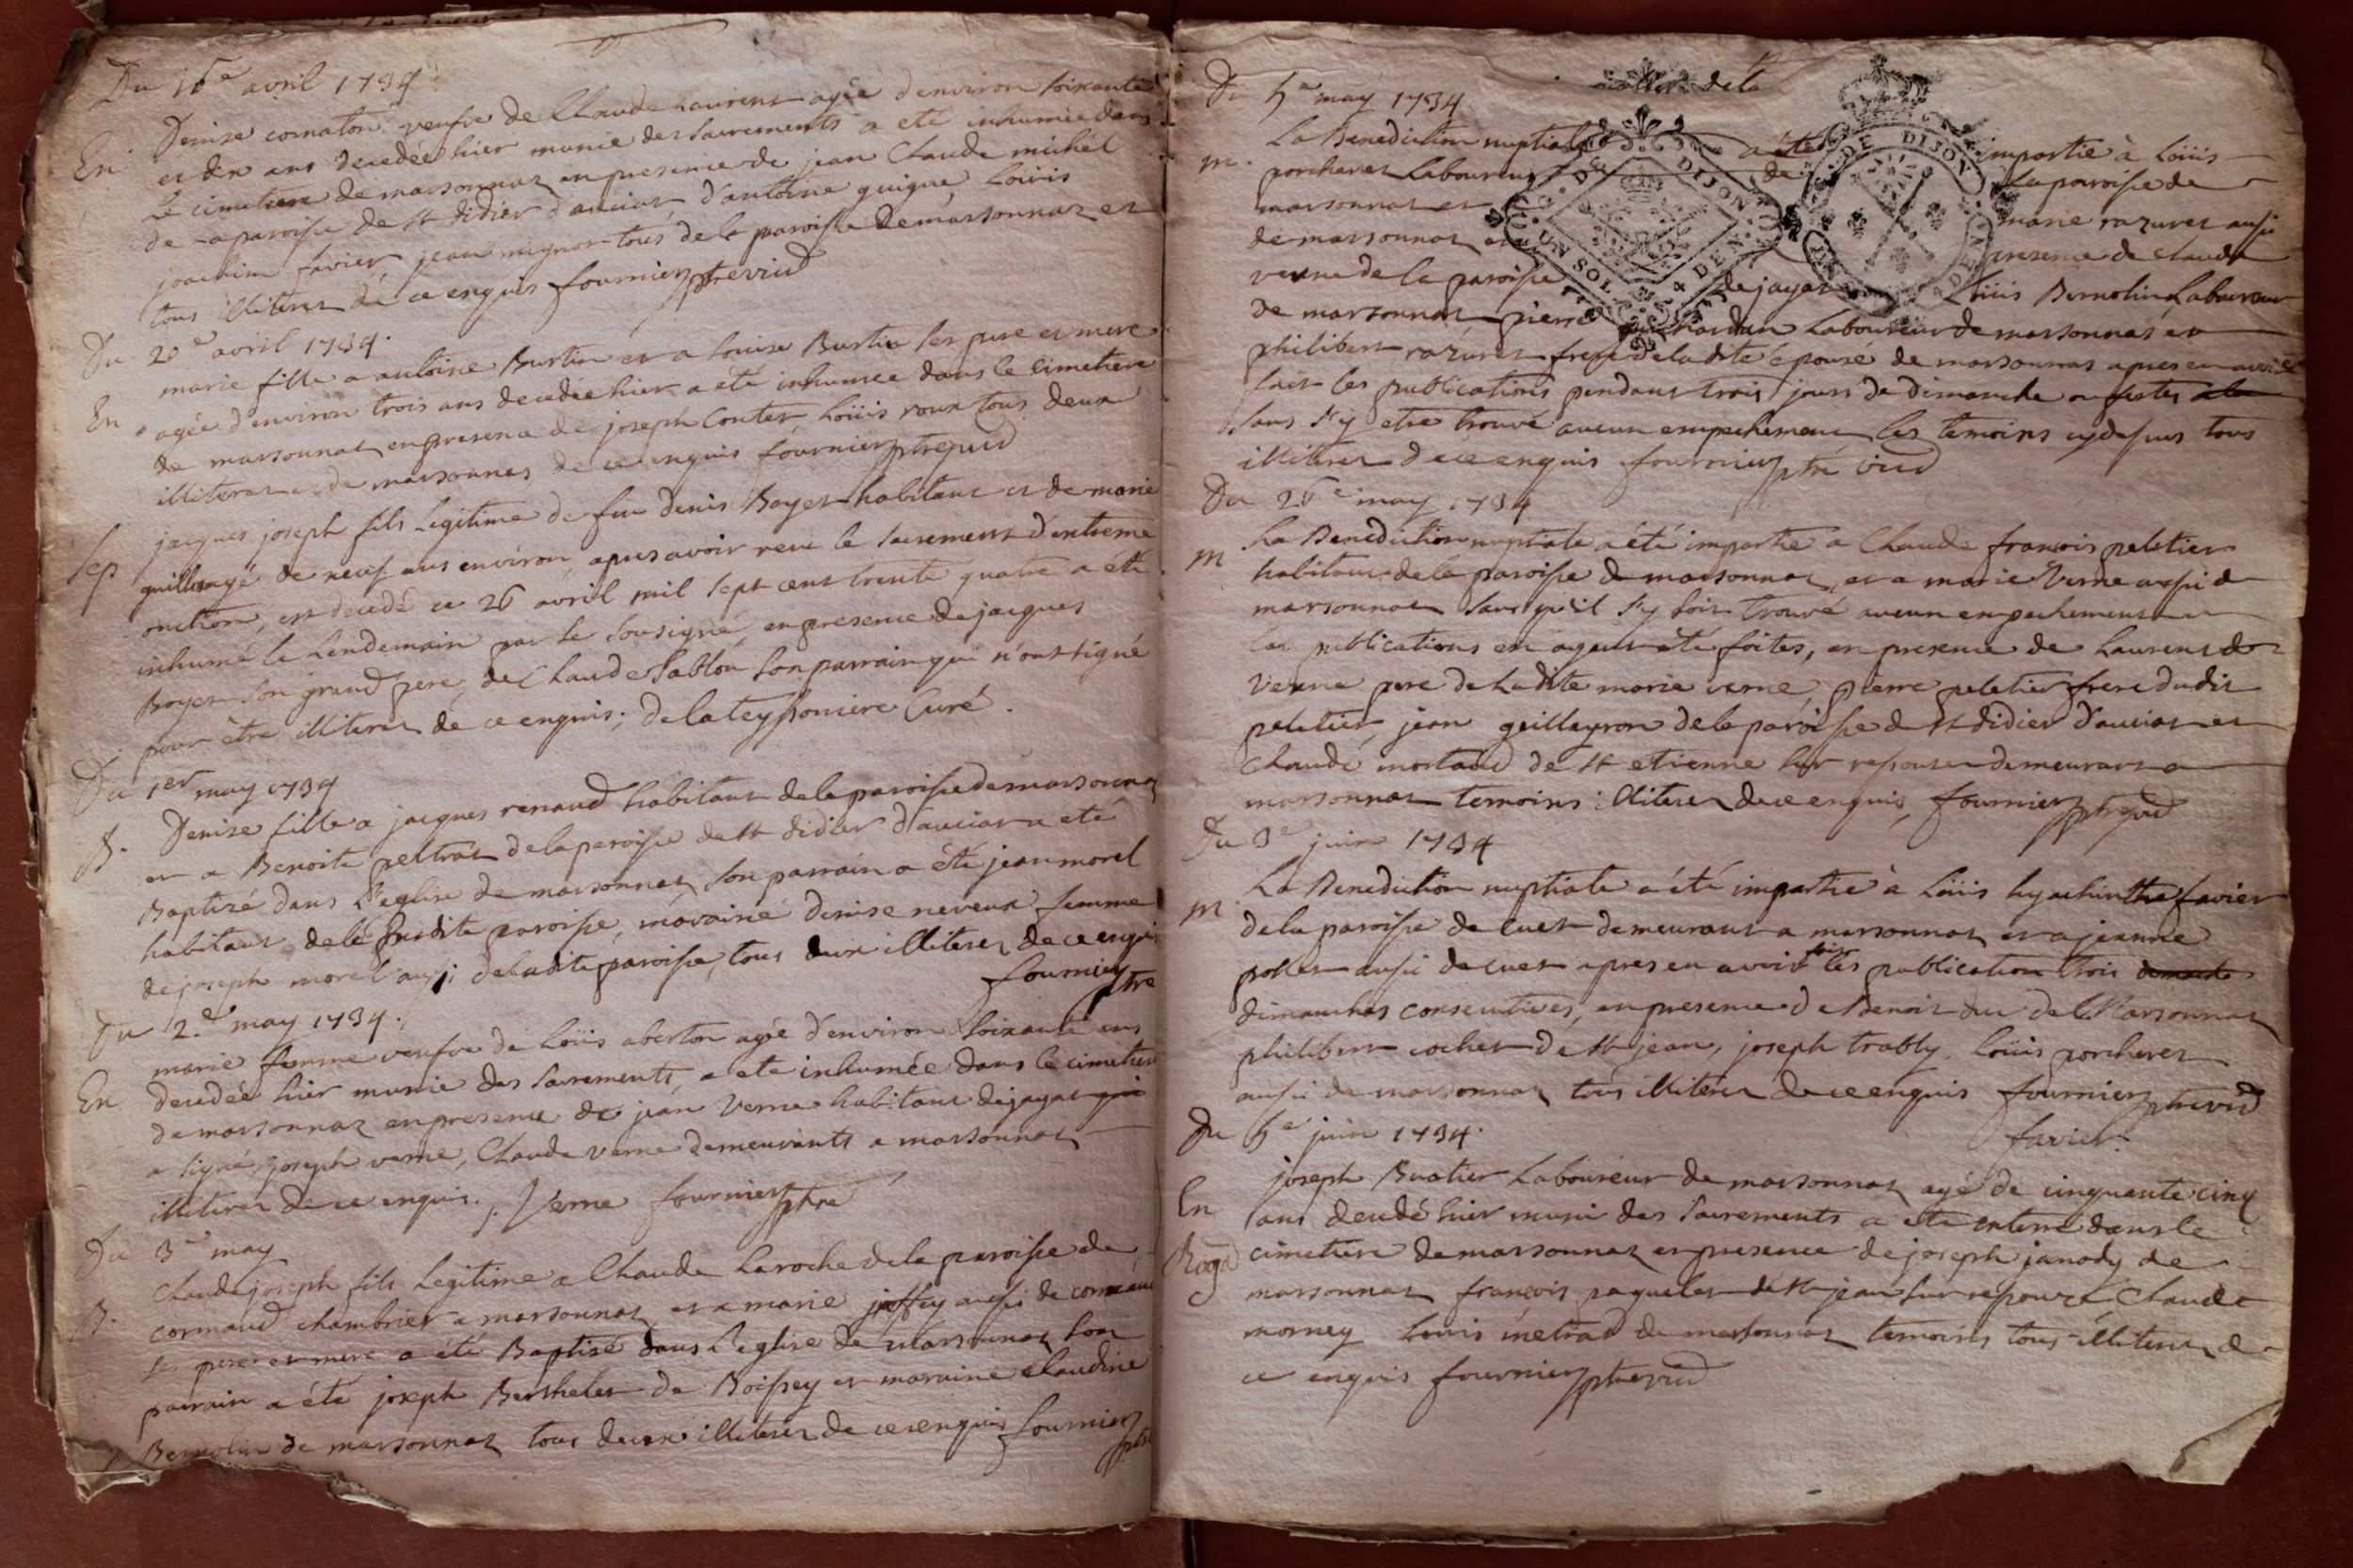 Du 16e avril 1734
En Denise comaton veufve de Claude Laurent agée d'environ soixante
et dix ans decedée hier munie des sacrements a eté inhumée dans
le cimetiere de marsonnaz en presence de jean Claude michel
de la paroisse de st didier d'auciat, d'antoine guigue, Loüis
joachim favier, jean mignot tous de la paroisse de marsonnaz et
tous illiterez de ce enquis fournier ptre vicd
Du 20e avril 1734.
En marie fille a antoine Burtin et a louise Burtin ses pere et mere
agée d'environ trois ans decedée hier a été inhumée dans le cimetiere
de marsonnaz en presence de joseph Contet, Loüis roux tous deux
illiterez de marsonnaz de ce enquis fournier ptre vicd
Sep jacques joseph fils Legitime de feu denis Boyet habitant et de marie
guillot agé de neuf ans environ, apres avoir receu le sacrement d'extreme
onction, est decedé ce 26 avril mil sept cent trente quatre a été
inhumé le Lendemain par le sousigné, en presence de jacques
Boyet son grand pere, de Claude Sablon son parrain qui n'ont signé
pour être illiterez de ce enquis; de la teyssoniere Curé.
Du 1er may 1734
B. Denise fille a jacques renaud habitant de la paroisse de marsonnaz
et a Benoite peltrat de la paroisse de st didier d'auciat a eté
Baptisé dans L'eglise de marsonnaz, son parrain a été jean morel
habitant de la susdite paroisse, maraine denise neveux femme
de joseph morel aussi de la dite paroisse, tous deux illiterez de ce enquis
fournier ptre
Du 2e may 1734.
En marie femme veufve de Loüis aberton agée d'environ soixante ans
decedée hier munie des sacrements, a eté inhumée dans le cimetiere
de marsonnaz en presence de jean Verne habitant de jayat qui
a signé, joseph verne, Claude verne demeurants a marsonnaz
illiterez de ce enquis. j. Verne fournier ptre
Du 3e may
B. Claude joseph fils Legitime a Claude Laroche de la paroisse de
cormand chambrier a marsonnaz et a marie joffey aussi de cormand
ses pere et mere a été Baptisé dans L'eglise de marsonnaz son
parrain a été joseph Berthelet de Boissey et maraine claudine
Bernolin de marsonnaz tous deux illiterez de ce enquis fournier ptre
Du 5e may 1734
m. La Benediction nuptiale a été impartie à Loüis
porcheret Laboureur de La paroisse de
marsonnaz et marie razuret aussi
de marsonnaz presence de claude
verne de la paroisse de jayat Loüis Bernolin Laboureur
de marsonnaz, pierre Laboureur de marsonnaz et
philibert razuret frere de la dite epouse de marsonnaz apres en avoir
fait les publications pendant trois jours de dimanche ou festes
sans s'y etre trouvé aucun empechement les temoins cydessus tous
illiterez de ce enquis fournier ptre vicd
Du 26e may 1734
m La Benediction nuptiale a été impartie a Claude francois peletier
habitant de la paroisse de marsonnaz, et a marie Verne aussi de
marsonnaz sans qu'il s'y soit trouvé aucun empechement
les publications en ayant été faites, en presence de Laurent
Verne pere de La dite marie verne, pierre peletier frere dudit
peletier, jean guilleyron de la paroisse de st didier d'auciat et
Claude mortaud de st etienne sur repousse demeurant a
marsonnaz temoins illiterez de ce enquis, fournier ptre vicd
Du 3e juin 1734
m. La Benediction nuptiale a été impartie à Loüis hyachinthe favier
de la paroisse de cuet demeurant a marsonnaz et a jeanne
pochet aussi de cuet apres en avoir fait les publication trois
dimanches consecutives, en presence de Benoit duc de Marsonnaz
philibert cochet de st jean, joseph trably Loüis porcheret
aussi de marsonnaz tous illiterez de ce enquis fournier ptre vicd
favier.
Du 5e juin 1734.
En joseph Buatier Laboureur de marsonnaz agé de cinquante cinq
ans decedé hier muni des sacrements a eté enterré dans le
cimetiere de marsonnaz en presence de joseph janody de
marsonnaz francois paquelet de st jean sur repouze Claude
morney Louis metrad de marsonnaz temoins tous illiterez de
ce enquis fournier ptre vicd
DE DIJON
UN SOL 4 DEN
DE DIJON